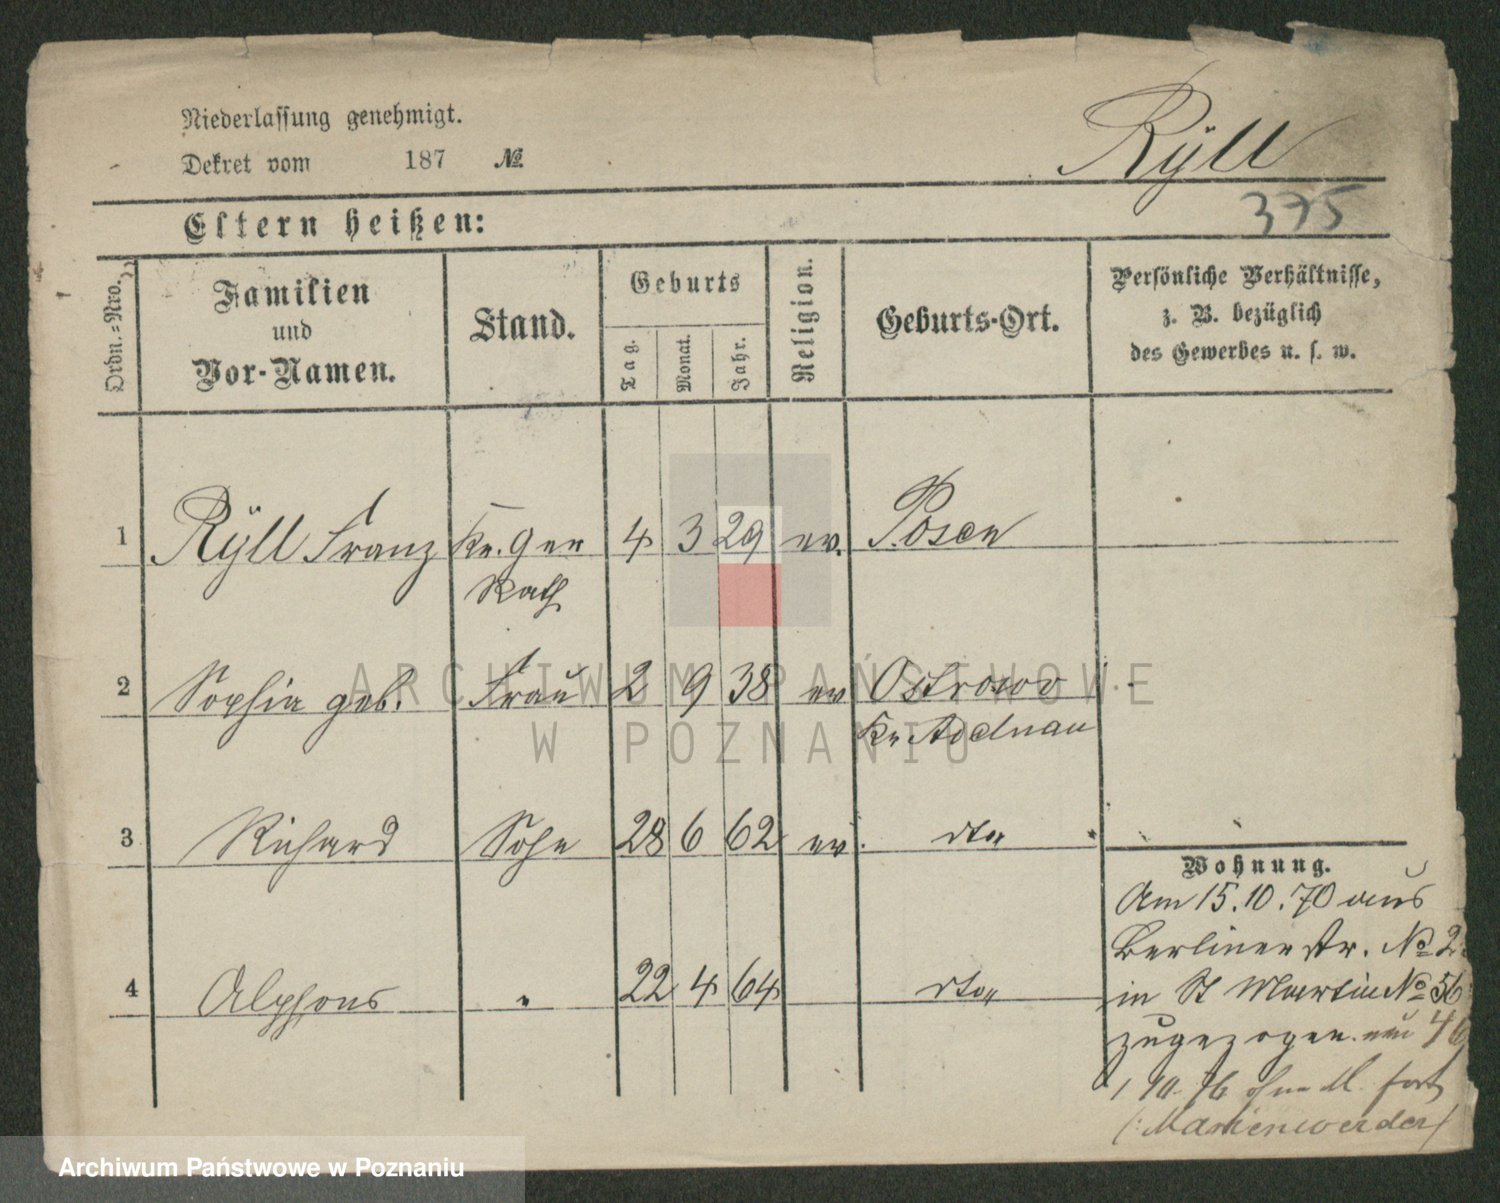 Niederlassung genehmigt.
Dekret vom 187 №
Rÿll
375
Eltern heißen:
Ordn.=Nro.
Familien
und
Vor-Namen.
Stand.
Geburts
Tag.
Monat.
Jahr.
Religion.
Geburts-Ort.
Persönliche Verhältnisse,
z. B. bezüglich
des Gewerbes u. s. w.
1 Rÿll Franz Kr. Ger 4 3 29 ev. Posen
Rath
2 Sophia geb. Frau 2 9 38 ev Ostrowo
Kr Adelnau
3 Richard Sohn 28 6 62 ev. dto
4 Alphons " 22 4 64 dto
Wohnung.
Am 15.10.70 aus
Berliner str. No 2
in St Martin No 56
zugezogen. 46
1 10. 76 ohne M. fort
(: Marienwerder /
ARCHIWUM PAŃSTWOWE
W POZNANIU
Archiwum Państwowe w Poznaniu